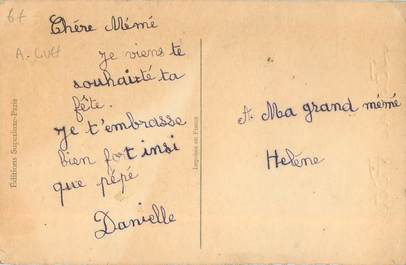 6f
A. Lutt
Chère Mémé
je viens te
souhaité ta
fête.
je t'embrasse
bien fort insi
que pépé
Danielle
Editions Superluxe-Paris
Imprimé en France
A Ma grand mémé
Helène